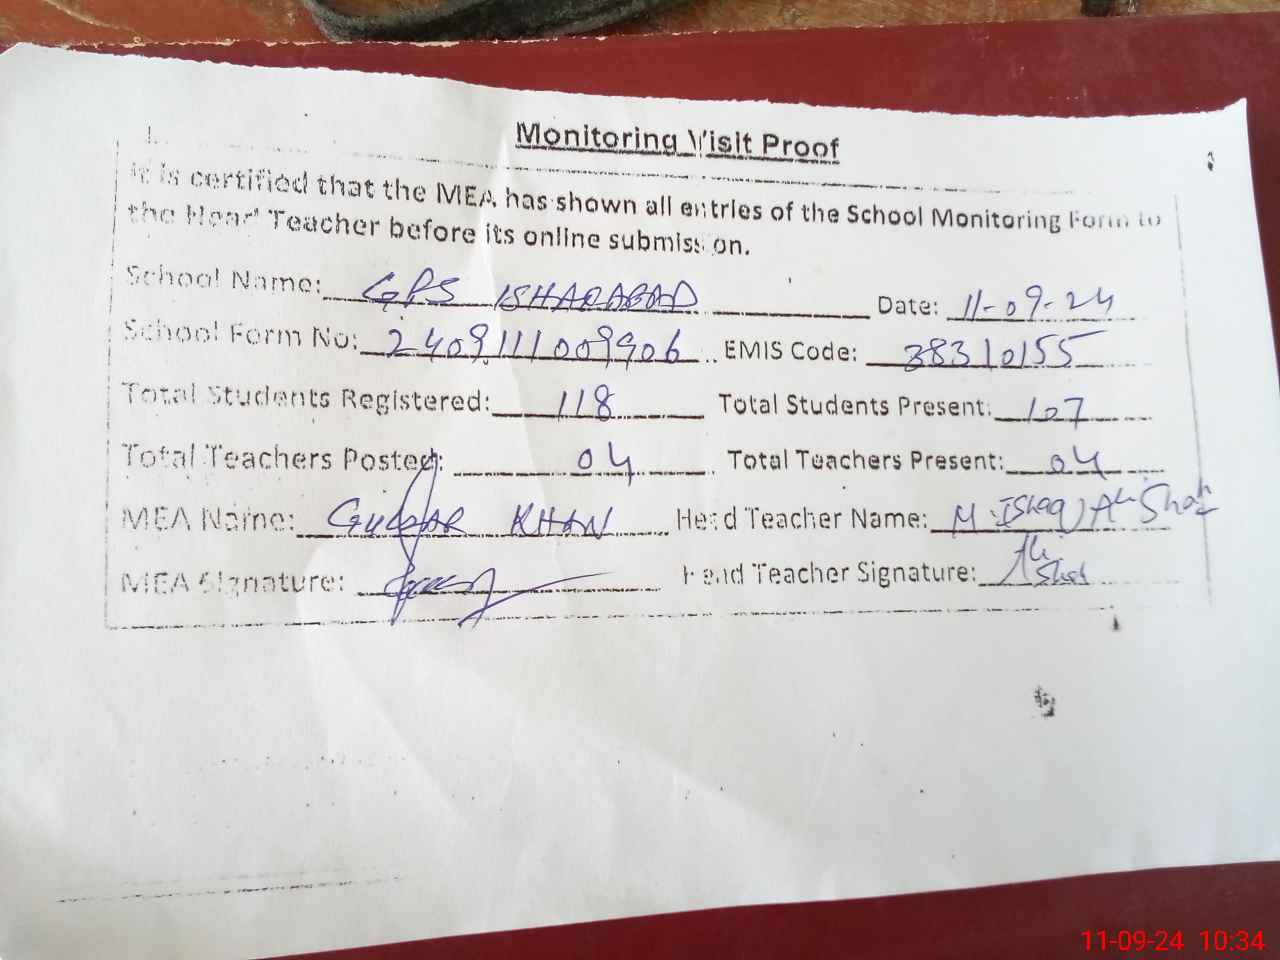 Monitoring Visit Proof
It is certified that the MEA has shown all entries of the School Monitoring Form to
the Head Teacher before its online submission.
School Name: GPS ISHARABAD Date: 11-09-24
School Form No: 2409111009906 EMIS Code: 38310155
Total Students Registered: 118 Total Students Present: 107
Total Teachers Posted: 04 Total Teachers Present: 04
MEA Name: KHAN Head Teacher Name: M. Ishaq Ali Shah
MEA Signature: Head Teacher Signature: Ali Shah
11-09-24 10:34